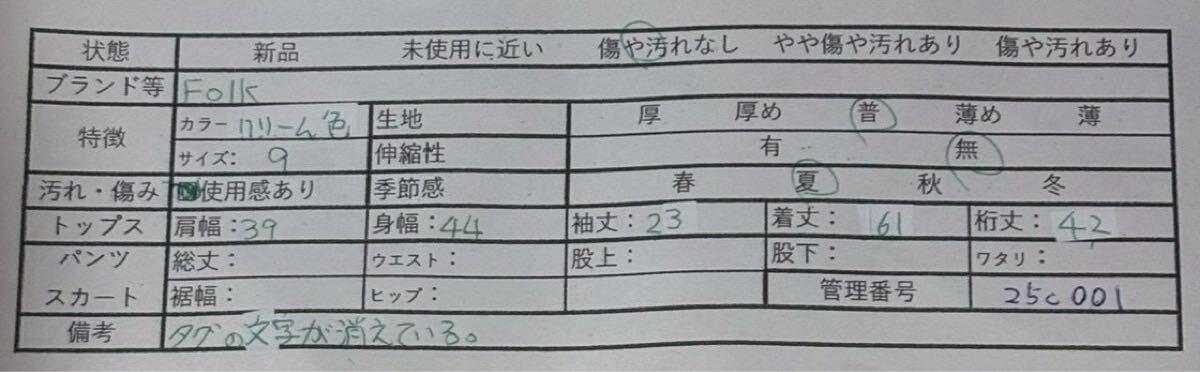 状態 新品 未使用に近い 傷や汚れなし やや傷や汚れあり 傷や汚れあり
ブランド等 Folk
特徴 カラー クリーム色 生地 厚 厚め 普 薄め 薄
サイズ: 9 伸縮性 有 無
汚れ・傷み 使用感あり 季節感 春 夏 秋 冬
トップス 肩幅:39 身幅:44 袖丈:23 着丈:61 桁丈:42
パンツ 総丈: ウエスト: 股上: 股下: ワタリ:
スカート 裾幅: ヒップ: 管理番号 25c001
備考 タグの文字が消えている。